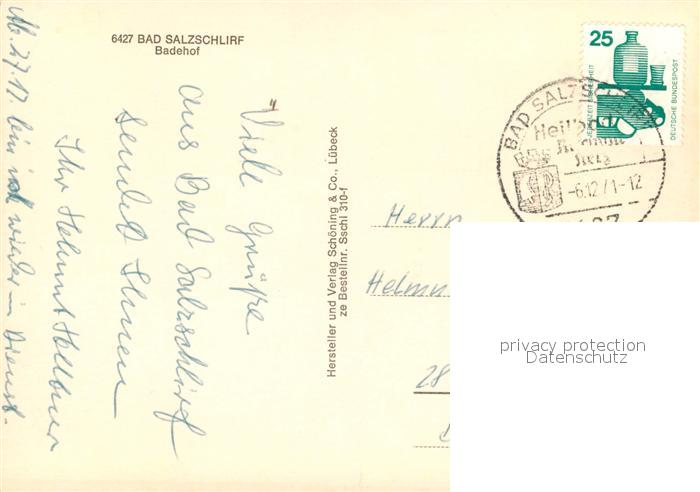 6427 BAD SALZSCHLIRF
Badehof
Viele Grüße
aus Bad Salzschlirf
sendet Ihnen
Ihr Helmut
Ab 27.12. bin ich wieder im Dienst.
Hersteller und Verlag Schöning & Co., Lübeck
ze Bestellnr. Sschl 310-f
Herrn
Helmu
28
25
JEDERZEIT SICHERHEIT
DEUTSCHE BUNDESPOST
BAD SALZSCHLIRF
-6.12.71-12
privacy protection
Datenschutz